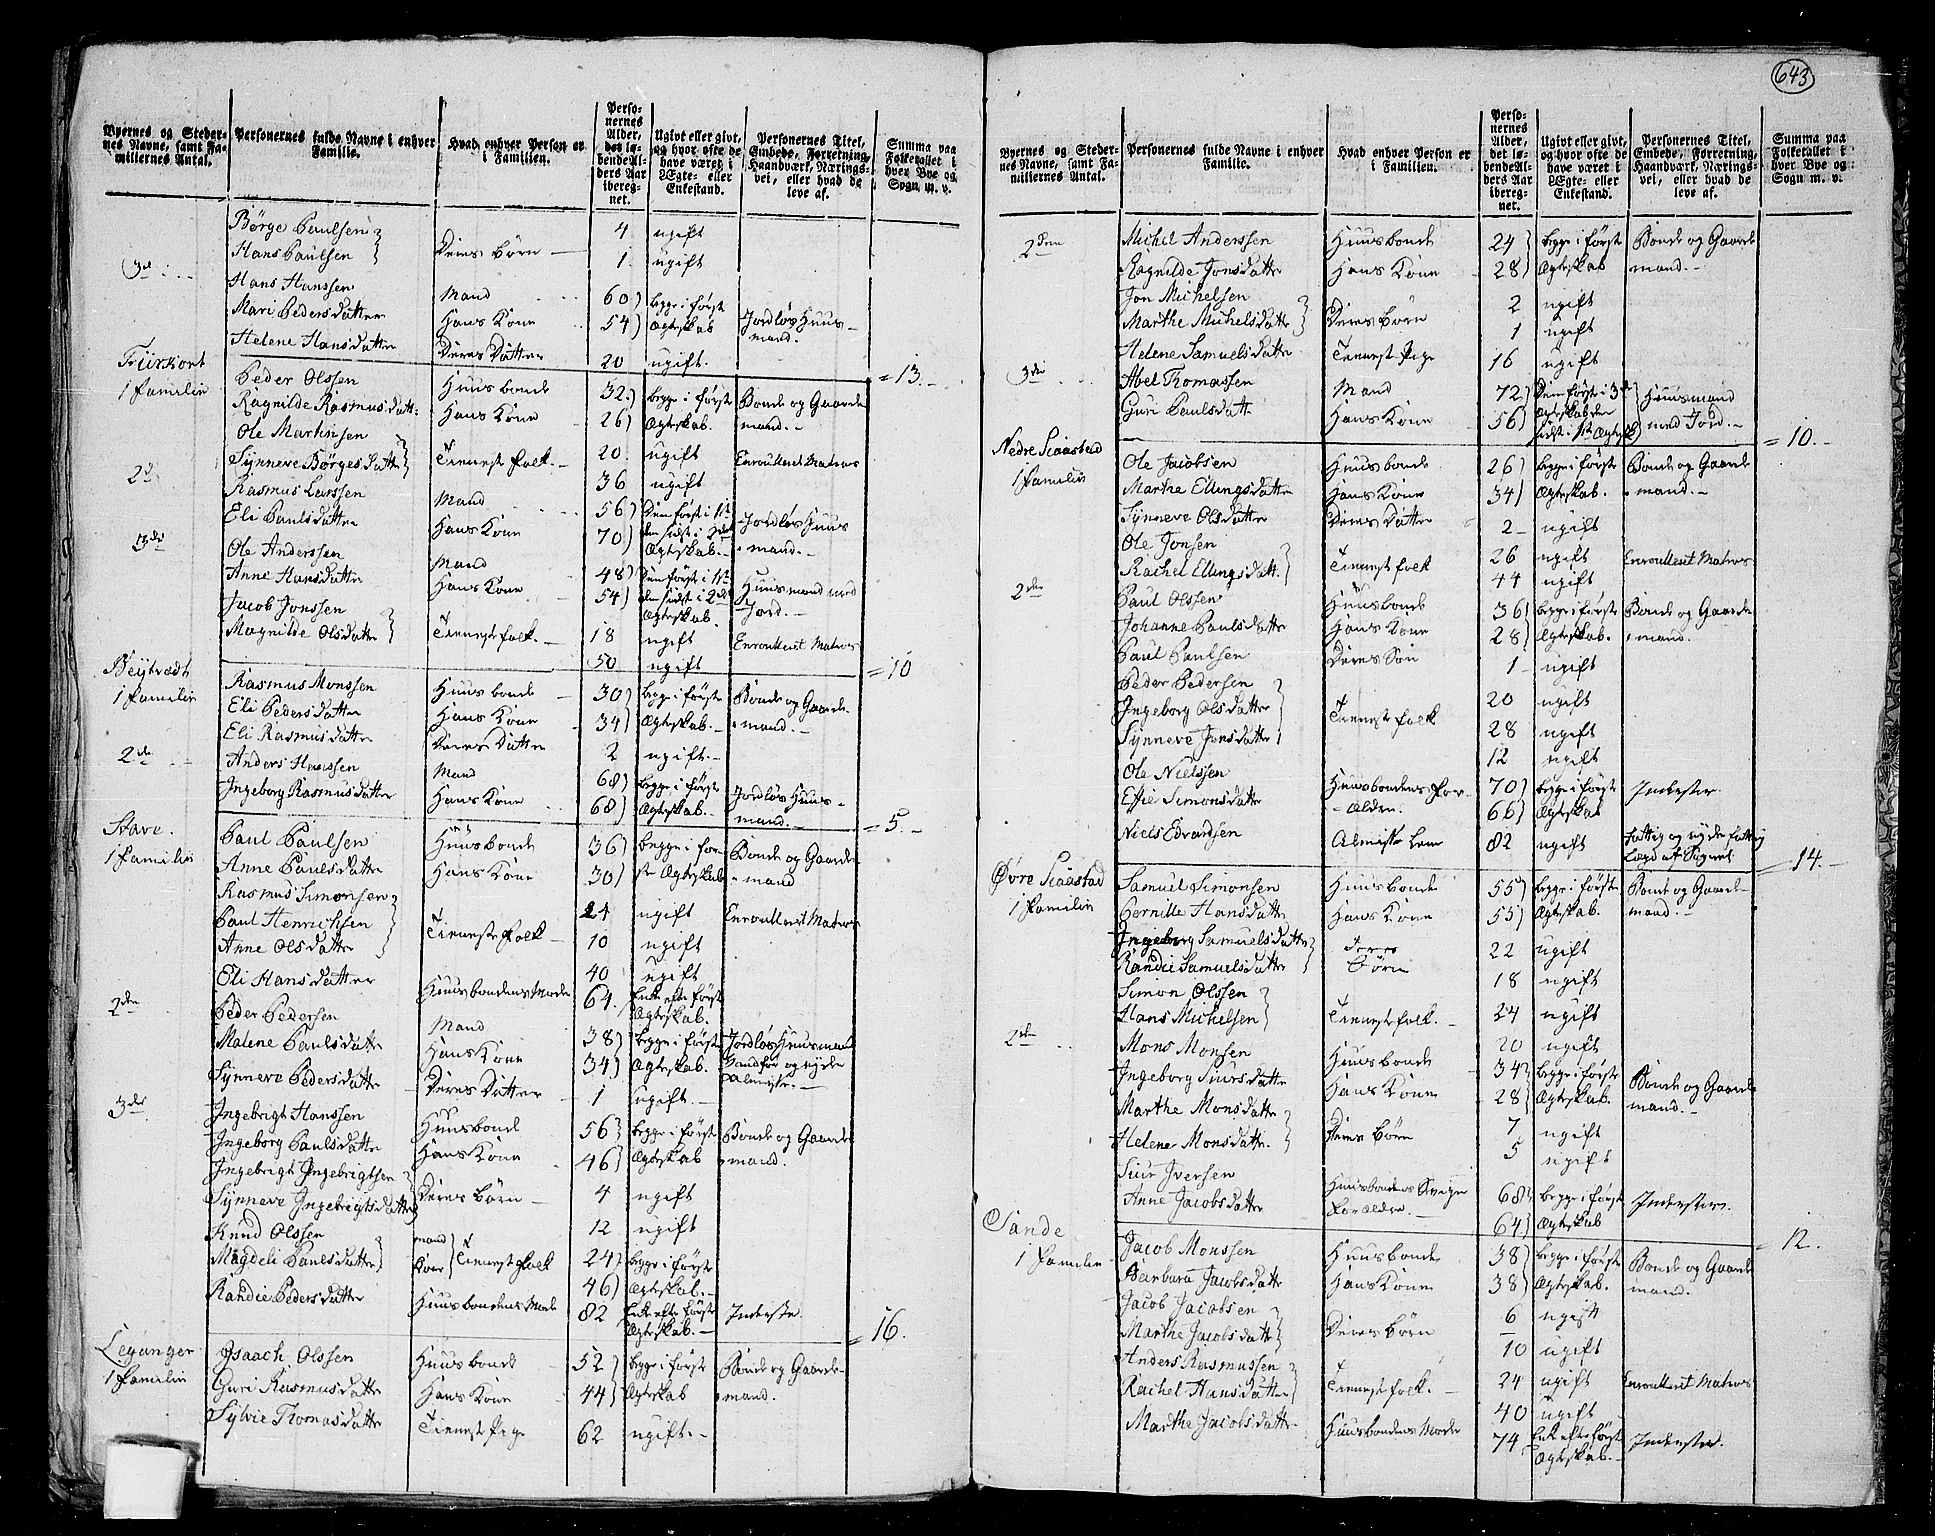 643
Byernes og Steder-
nes Navne, samt Fa-
miliernes Antal.
Personernes fulde Navne i enhver
Familie.
Hvad enhver Person er
i Familien.
Perso-
nernes
Alder,
det lø-
bende Al-
ders Aar
ibereg-
net.
Ugivt eller givt,
og hvor ofte de
have været i
Ægte- eller
Enkestand.
Personernes Titel,
Embede, Forretning,
Haandværk, Nærings-
vei, eller hvad de
leve af.
Summa paa
Folketallet i
hver Bye og
Sogn m. v.
Børge Paulsen 4 ugift
Hans Paulsen Deres børn 1 ugift
3de Hans Hanssen Mand 60 begge i første
Mari Pedersdatter Hans Kone 54 Ægteskab Jordløs Huus-
mand.
Helene Hansdatter Deres Datter 20 ugift. = 13.
1 familie Peder Olssen Huusbonde 32 begge i første Bonde og Gaard-
Ragnilde Rasmusdatt: Hans Kone 26 Ægteskab. mand.
Ole Martinsen 20 ugift Enroulleret Matros
Synneve Børgesdatter Tienestefolk. 36 ugift
2d Rasmus Larssen Mand 56 Den først i 1ste
Eli Paulsdatter Hans Kone 70 den sidst i 2det Jordløs Huus
Ægteskab. mand.
3de Ole Anderssen Mand 48 Den først i 1ste
Anne Hansdatter Hans Kone 54 den sidst i 2det Huusmand med
Ægteskab. Jord.
Jacob Jonssen 18 ugift Enroulleret Matros
Magnilde Olsdatter Tienestefolk. 50 ugift = 10
1 familie Rasmus Monssen Huusbonde 30 begge i første Bonde og Gaard-
Eli Pedersdatter Hans Kone 34 Ægteskab. mand.
Eli Rasmusdatter Deres Datter 2 ugift.
2de Anders Hanssen Mand 68 begge i første
Ingeborg Rasmusdatter Hans Kone 68 Ægteskab. Jordløs Huus-
mand. = 5.
Stave.
1 familie Paul Paulsen Huusbonde 36 begge i før- Bonde og Gaard-
Anne Paulsdatter Hans Kone 30 ste Ægteskab mand
Rasmus Simonsen 24 ugift Enroulleret Matros
Paul Henrichsen Tienestefolk 10 ugift
Anne Olsdatter 40 ugift
Eli Hansdatter Huusbondens Moder 64. Enke efter første
Ægteskab.
2den Peder Pedersen Mand 38 begge i første Jordløs Huusmand
Malene Paulsdatter Hans Kone 34 Ægteskab. Vanfør og nyder
Almisse.
Synneve Pedersdatter Deres Datter 1 ugift.
3de Ingebrigt Hanssen Huusbonde 56 begge i første Bonde og Gaard-
Ingeborg Paulsdatter Hans Kone 46 Ægteskab mand.
Ingebrigt Ingebrigtsen 4 ugift
Synneve Ingebrigtsdatter Deres børn 12 ugift
Knud Olssen mand 24 begge i første
Magdeli Paulsdatter Kone Tienestefolk 46 Ægteskab.
Randie Pedersdatter Huusbondens Mode 82 Enke efter første Inderste.
Ægteskab. = 16.
Leganger
1 familie Isaach Olssen Huusbonde 52 begge i første Bonde og Gaard-
Guri Rasmusdatter Hans Kone 44 Ægteskab mand.
Sylvie Thomasdatter Tieneste Pige 62 ugift.
Byernes og Steder-
nes Navne, samt Fa-
miliernes Antal.
Personernes fulde Navne i enhver
Familie.
Hvad enhver Person er
i Familien.
Perso-
nernes
Alder,
det lø-
bende Al-
ders Aar
ibereg-
net.
Ugivt eller givt,
og hvor ofte de
have været i
Ægte- eller
Enkestand.
Personernes Titel,
Embede, Forretning,
Haandværk, Nærings-
vei, eller hvad de
leve af.
Summa paa
Folketallet i
hver Bye og
Sogn m. v.
2den Michel Anderssen Huusbonde 24 begge i først Bonde og Gaard-
Ragnilde Jonsdatter Hans Kone 28 Ægteskab mand.
Jon Michelsen 2 ugift
Marthe Michelsdatter Deres børn 1 ugift
Helene Samuelsdatter Tieneste Pige 16 ugift
3de Abel Thomassen Mand 72 Den først i 3de Huusmand
Guri Paulsdatte Hans Kone 56 Ægteskab den med Jord.
sidst i 1ste Ægtesk = 10.
Nedre Skaastad
1 familie Ole Jacobsen Huusbonde 26 begge i første Bonde og Gaard-
Marthe Ellingsdatter Hans Kone 34 Ægteskab. mand.
Synneve Olsdatter Deres Datter 2 ugift
Ole Jonsen 26 ugift Enroulleret Matros
Rachel Ellingsdatt. Tienestefolk 44 ugift
2den Paul Olssen Huusbonde 36 begge i første Bonde og Gaard-
Johanne Paulsdatter Hans Kone 28 Ægteskab. mand.
Paul Paulsen Deres Søn 1 ugift
Peder Pedersen 20 ugift
Ingeborg Olsdatter Tienestefolk 28 ugift
Synneve Jonsdatter 12 ugift
Ole Nielssen Huusbondens For- 70 begge i første Inderster
Effie Simonsdatter ældre. 66 Ægteskab
Niels Edvardsen Almisse Lem 82 ugift fattig og nyder fattig
Lægd af Sognet = 14.
Øvre Skaastad
1 familie Samuel Simonsen Huusbonde 55 begge i første Bonde og Gaard-
Pernille Hansdatter Hans Kone 55 Ægteskab. mand.
Ingeborg Samuelsdatter Deres 22 ugift
Randie Samuelsdatter Børn 18 ugift
Simon Olssen 24 ugift
Hans Michelsen Tienestefolk. 20 ugift
2den Mons Monsen Huusbonde 34 begge i første Bonde og Gaard-
Ingeborg Siursdatter Hans Kone 28 Ægteskab. mand.
Marthe Monsdatter 7 ugift
Helene Monsdatter. Deres børn 5 ugift
Siur Iversen Huusbondens Sviger 68 begge i første Inderster.
Anne Jacobsdatter Forældre. 64 Ægteskab = 12.
Sande
1 familie Jacob Monssen Huusbonde 38 begge i første Bonde og Gaard-
Barbara Jacobsdatter Hans Kone 38 Ægteskab. mand.
Jacob Jacobsen 6 ugift
Marthe Jacobsdatter Deres børn 10 ugift
Anders Rasmussen 24 ugift Enroulleret Matros
Rachel Hansdatter Tienestefolk. 40 ugift
Marthe Jacobsdatter Huusbondens Moder 74 Enke efter første Inderster.
Ægteskab.